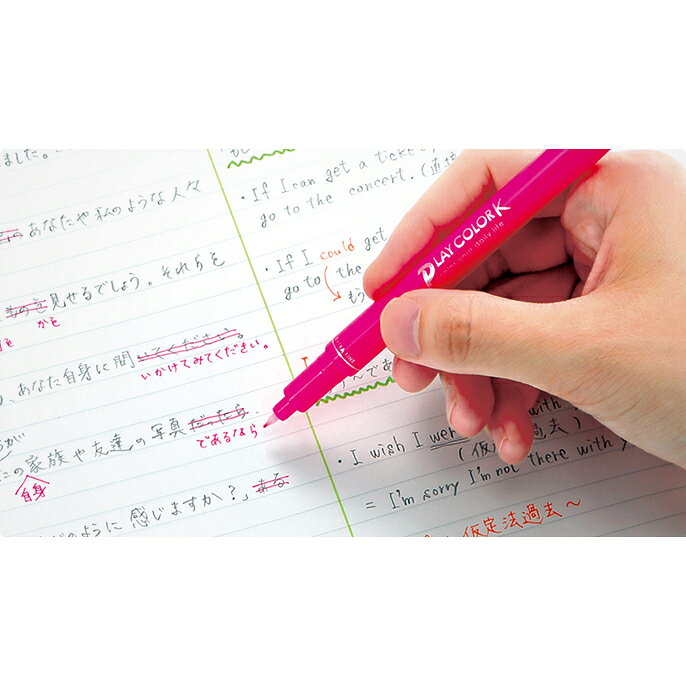 ました。
あなたや私のような人々
ものを見せるでしょう。それらを
かを
あなた自身に問いてください。
いかけてみてください。
この家族や友達の写真だったら
自身
であるなら
のように感じますか?」ある
・If I can get a ticket
go to the concert.
・If I could get
go to the
もう
・I wish I wer with
(仮 過去)
= I'm sorry I'm not there with y
仮定法過去～
PLAY COLOR K
color your daily life